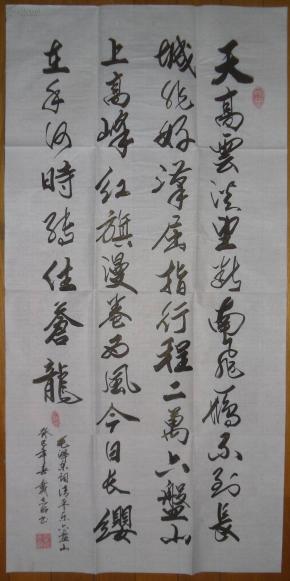 天高雲淡望断南飛鴈不到長
城非好漢屈指行程二萬六盤山
上高峰红旗漫卷西風今日長纓
在手何時縛住蒼龍
毛澤東詞清平乐六盤山
癸巳年春戴志書